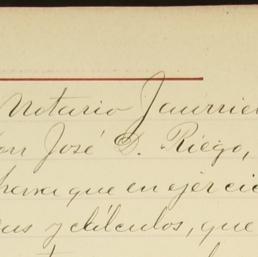 Notario Jaurrie
on José S. Riego,
que en ejercic
y cálculos, que